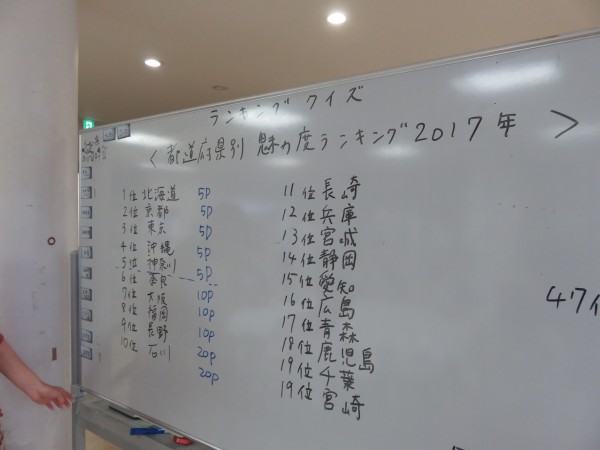 ランキングクイズ
< 都道府県別 魅力度ランキング2017年 >
1位 北海道 5P
2位 京都 5P
3位 東京 5P
4位 沖縄 5P
5位 神奈川 5P
6位 奈良 10P
7位 大阪 10P
8位 福岡 10P
9位 長野 20P
10位 石川 20P
11位 長崎
12位 兵庫
13位 宮城
14位 静岡
15位 愛知
16位 広島
17位 青森
18位 鹿児島
19位 千葉
19位 宮崎
47位